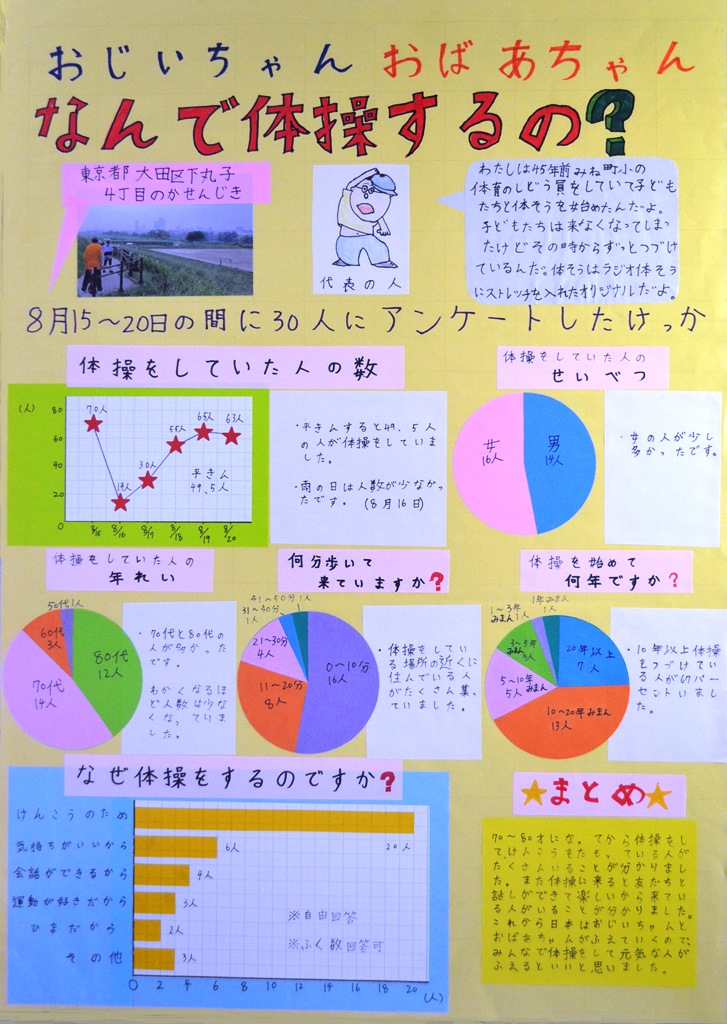 おじいちゃん おばあちゃん
なんで体操するの?
東京都 大田区下丸子
4丁目のかせんじき
代表の人
わたしは45年前みね町小の
体育のしどう員をしていて子ども
たちと体そうを始めたんだよ。
子どもたちは来なくなってしまっ
たけどその時からずっとつづけ
ているんだ。体そうはラジオ体そう
にストレッチを入れたオリジナルだよ。
8月15〜20日の間に30人にアンケートしたけっか
体操をしていた人の数
(人)
80
60
40
20
0
70人
14人
30人
55人
65人
63人
平きん
49.5人
8/15
8/16
8/17
8/18
8/19
8/20
・平きんすると49.5人
の人が体操をしていま
した。
・雨の日は人数が少なかっ
たです。(8月16日)
体操をしていた人の
せいべつ
女
16人
男
14人
・女の人が少し
多かったです。
体操をしていた人の
年れい
50代1人
60代
3人
80代
12人
70代
14人
・70代と80代の
人が多かったで
す。
わかくなるほ
ど人数は少な
くなっていま
した。
何分歩いて
来ていますか?
41〜50分1人
31〜40分
1人
21〜30分
4人
11〜20分
8人
0〜10分
16人
・体操をしてい
る場所の近くに
住んでいる人
がたくさん集っ
ていました。
体操を始めて
何年ですか?
1年みまん
1人
1〜3年
みまん1人
3〜5年
みまん
3人
5〜10年
みまん
5人
20年以上
7人
10〜20年みまん
13人
・10年以上体操
をつづけてい
る人が67パー
セントいまし
た。
なぜ体操をするのですか?
けんこうのため
20人
気持ちがいいから
6人
会話ができるから
4人
運動が好きだから
3人
ひまだから
2人
その他
3人
※自由回答
※ふく数回答可
0 2 4 6 8 10 12 14 16 18 20
(人)
★まとめ★
70〜80才になってから体操をし
てけんこうをたもっている人が
たくさんいることが分かりまし
た。また体操に来ると友だちと
話しができて楽しいから来てい
る人がいることが分かりました。
これから日本はおじいちゃんと
おばあちゃんがふえていくので、
みんなで体操をして元気な人が
ふえるといいと思いました。